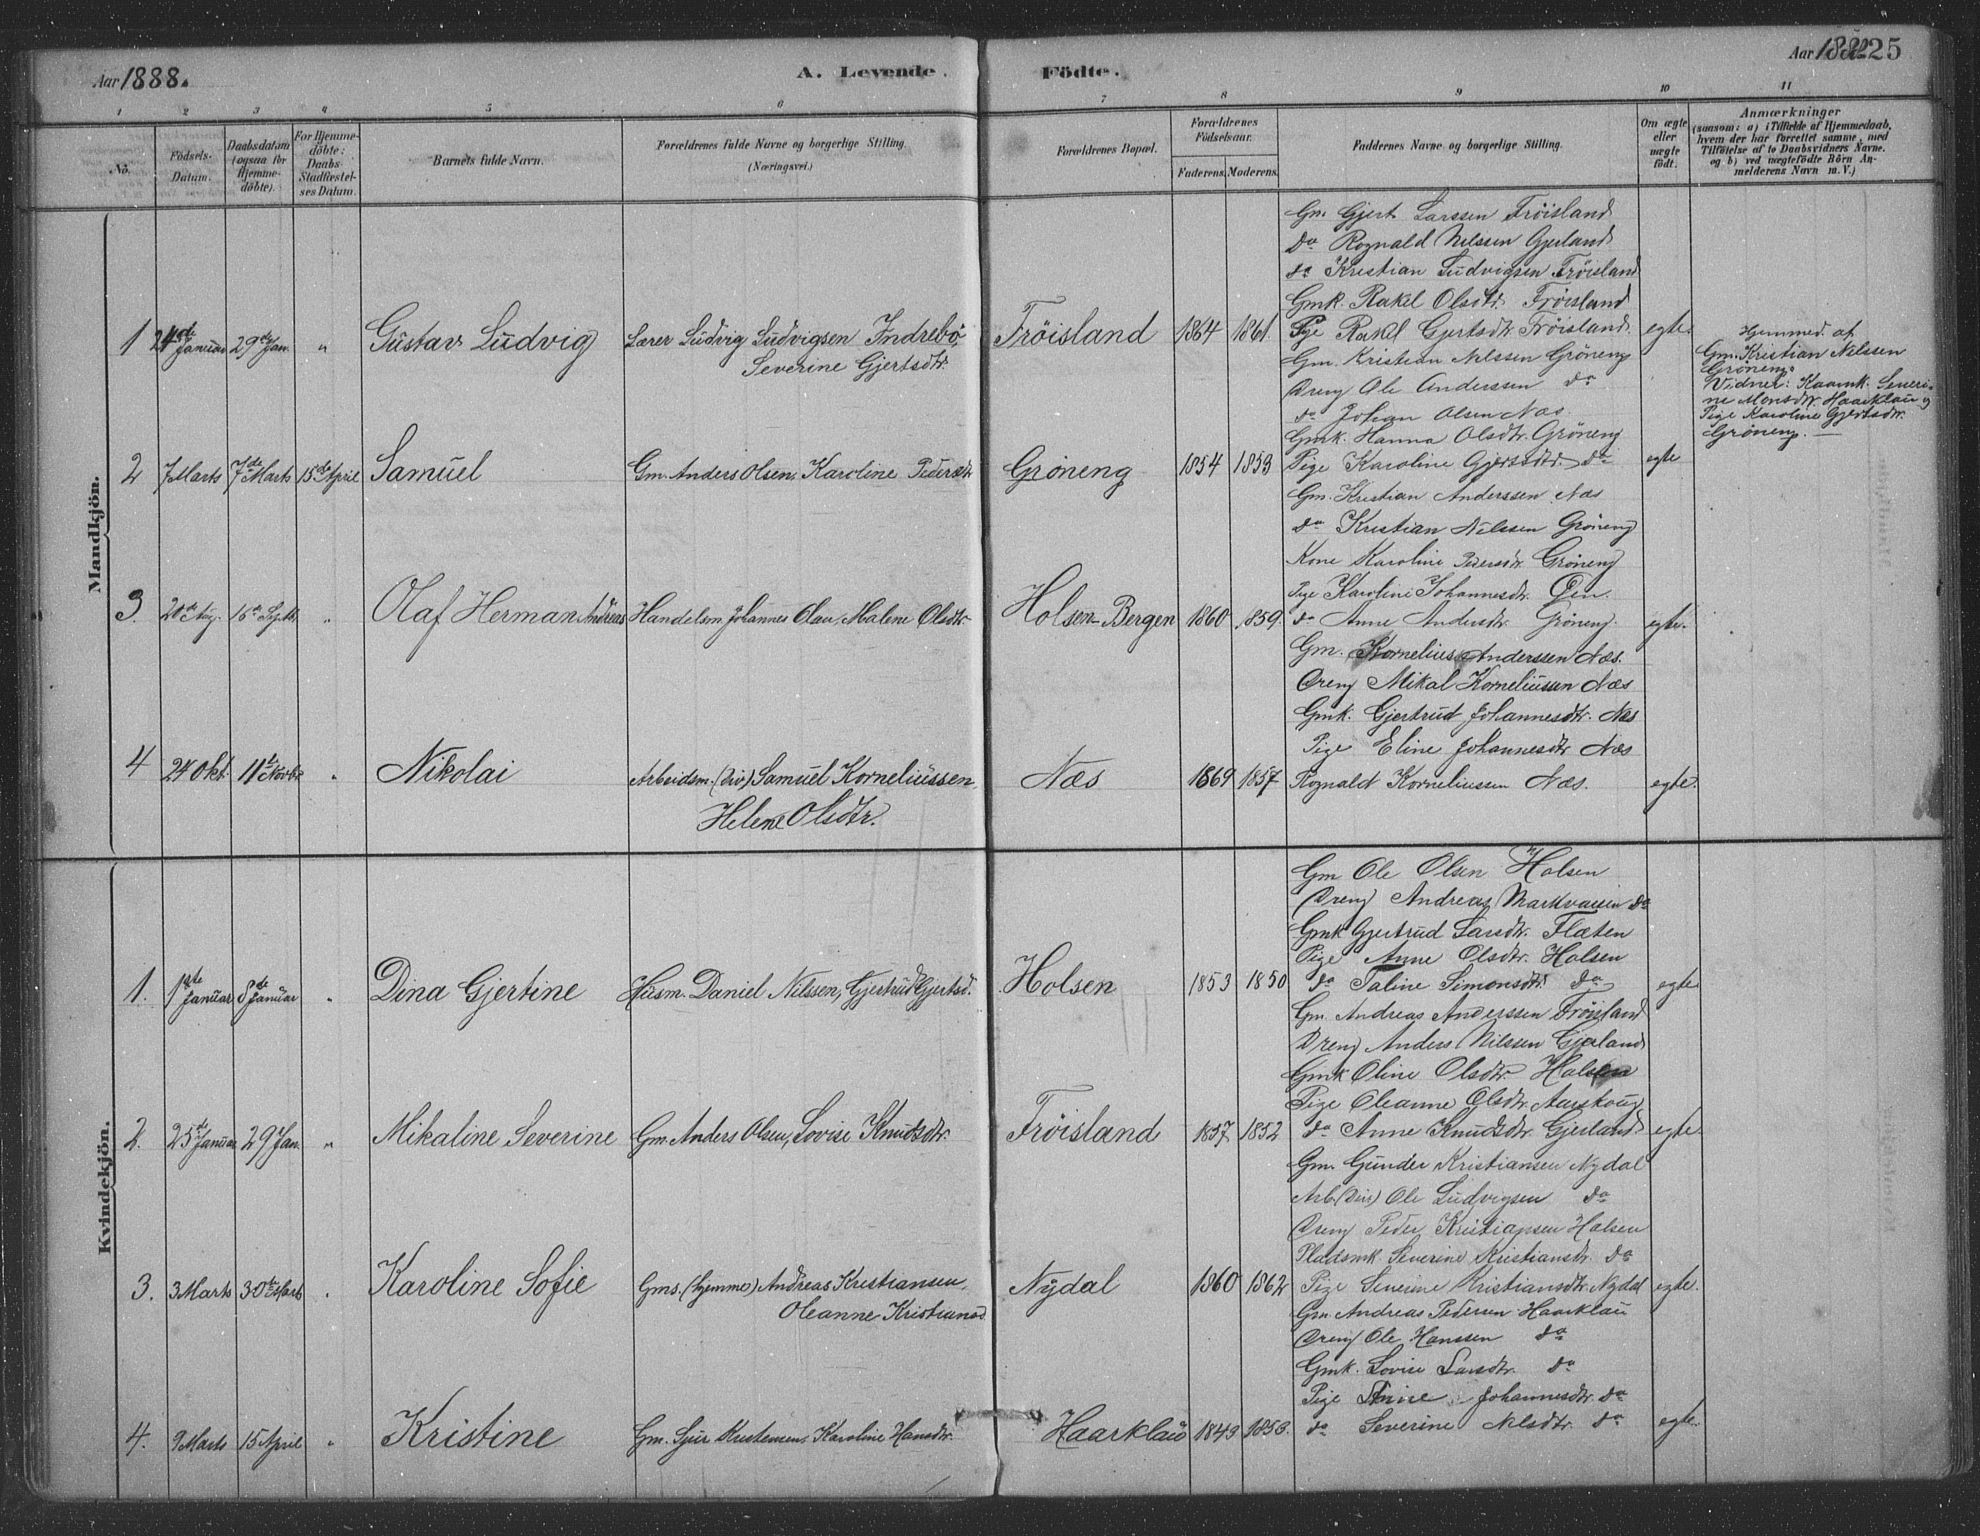 Aar 1888.
A. Levende Födte.
Aar 1888. 25
1 2 3 4 5 6 7 8 9 10 11
No.
Födsels-Datum.
Daabsdatum (ogsaa for Hjemmedöbte).
For Hjemmedöbte: Daabs-Stadfæstelses Datum.
Barnets fulde Navn.
Forældrenes fulde Navne og borgerlige Stilling. (Næringsvei.)
Forældrenes Bopæl.
Forældrenes Födselsaar.
Faderens. Moderens.
Faddernes Navne og borgerlige Stilling.
Om ægte eller uægte født.
Anmærkninger
(saasom: a) i Tilfælde af Hjemmedaab,
hvem der har forrettet samme, med
Tilföielse af to Daabsvidners Navne.
og b) ved uægtefödte Börn An-
melderens Navn m. V.)
Mandkjön.
Gm. Gjert Larssen Fröisland
do Rognald Nilssen Gjerland
do Kristian Ludvigsen Fröisland
Gmk. Rakel Olsdtr. Fröisland
1 24de Januar 29de Jan. " Gustav Ludvig Lærer Ludvig Ludvigsen Indrebö, Fröisland 1864 1861. Pige Rakel Gjertsdtr. Fröisland. egte.
Severine Gjertsdtr.
Hjemmed. af
Gm. Kristian Nilssen
Gröneng.
Vidner: Kaarmk. Severi-
ne Monsdtr. Haarklau og
Pige Karoline Gjertsdtr.
Gröneng. —
Gm. Kristian Nilssen Gröneng
Dreng Ole Anderssen do
do Johan Olsen Næs.
Gmk. Hanna Olsdtr. Gröneng
2 7 Marts 7de Marts 15de April Samuel Gm. Anders Olsen, Karoline Pedersdtr Gröneng 1854 1859 Pige Karoline Gjertsdtr. do egte
Gm. Kristian Anderssen Næs
do Kristian Nilssen Gröneng
Kone Karoline Pedersdtr. Gröneng
Pige Karoline Johannesdtr. Öen.
3. 20de Aug. 16de Septbr. " Olaf Herman Andreas Handelsm. Johannes Olsen, Malene Olsdtr. Holsen-Bergen 1860 1859 do Anne Andersdtr. Gröneng. egte.
Gm. Kornelius Anderssen Næs.
Dreng Mikal Korneliussen Næs
Gmk. Gjertrud Johannesdtr. Næs
Pige Eline Johannesdtr. Næs
4 24 Okt. 11te Novbr " Nikolai Arbeidsm. (Div) Samuel Korneliussen, Næs 1869 1857 Rognald Korneliussen Næs. egte.
Helene Olsdtr.
Kvindekjön.
Gm Ole Olsen Holsen
Dreng Andreas do
Gmk Gjertrud Larsdtr. Flæten
Pige Anne Olsdtr. Holsen
1. 1ste Januar 8de Januar " Dina Gjertine Husm. Daniel Nilssen, Gjertrud Gjertsd. Holsen 1853 1850 do Taline Simonsdtr. do egte
Gm. Andreas Anderssen Fröisland
Dreng Anders Nilssen Gjerland
Gmk Oline Olsdtr Holsen
Pige Oleanne Olsdtr. Aarskoug
2. 25de Januar 29 Jan. " Mikaline Severine Gm. Anders Olsen, Lovise Knutsdtr. Fröisland 1857 1852 do Anne Knutsdtr. Gjerland egte.
Gm. Gunder Kristiansen Nydal
Arb. (Div) Ole Ludvigsen do
Dreng Peder Kristiansen Holsen
Pladsmk. Severine Kristiansdtr. do
3. 3 Marts 30te Marts " Karoline Sofie Gms. (hjemme) Andreas Kristiansen, Nydal 1860 1862 Pige Severine Kristiansdtr. Nydal egte.
Oleanne Kristiansd
Gm Andreas Pedersen Haarklau
Dreng Ole Hanssen do
Gmk. Lovise Larsdtr. do
Pige Johannesdtr. do
4. 9 Marts 15 April " Kristine Gm. Sjur Karoline Hansdtr. Haarklau 1849 1853. do Severine Nilsdtr. do egte.